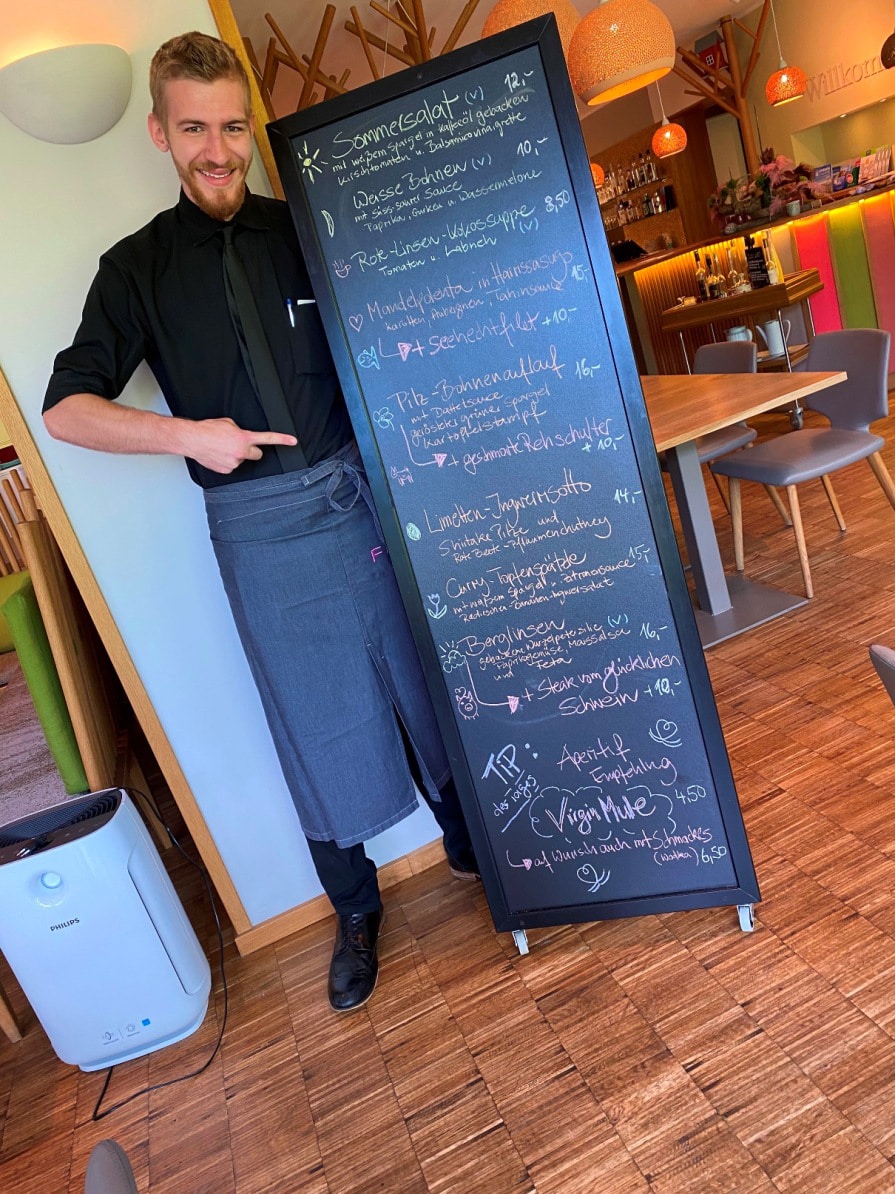 Sommersalat (v) 12,-
mit weißem Spargel in Kaffeeöl gebacken
Kirschtomaten u. Balsamicovinaigrette
Weisse Bohnen (v) 10,-
mit Süss-saurer Sauce
Paprika, Gurken u. Wassermelone
Rote-Linsen-Kokossuppe 8,50
Tomaten u. Labneh (v)
Mandelpolenta in Harissasugo 15,-
Karotten, Auberginen, Tahinsauce
+ Seehechtfilet +10,-
Pilz-Bohnenauflauf 16,-
mit Dattelsauce
gerösteter grüner Spargel
Kartoffelstampf
+ geschmorte Rehschulter
+ 10,-
Limetten-Ingwerrisotto 14,-
Shiitake Pilze und
Rote Beete-Pflaumenchutney
Curry-Topfenspätzle 15,-
mit weißem Spargel u. Zitronensauce
Radieschen-Bananen-Ingwersalat
Berglinsen (v) 16,-
gebackene Wurzelpetersilie
Paprikagemüse, Maissalsa
und Feta
+ Steak vom glücklichen
Schwein +10,-
TIP:
des Tages
Aperitif
Empfehlung
Virgin Mule 4,50
auf Wunsch auch mit Schmackes
(Wodka) 6,50
Willkom
PHILIPS
F